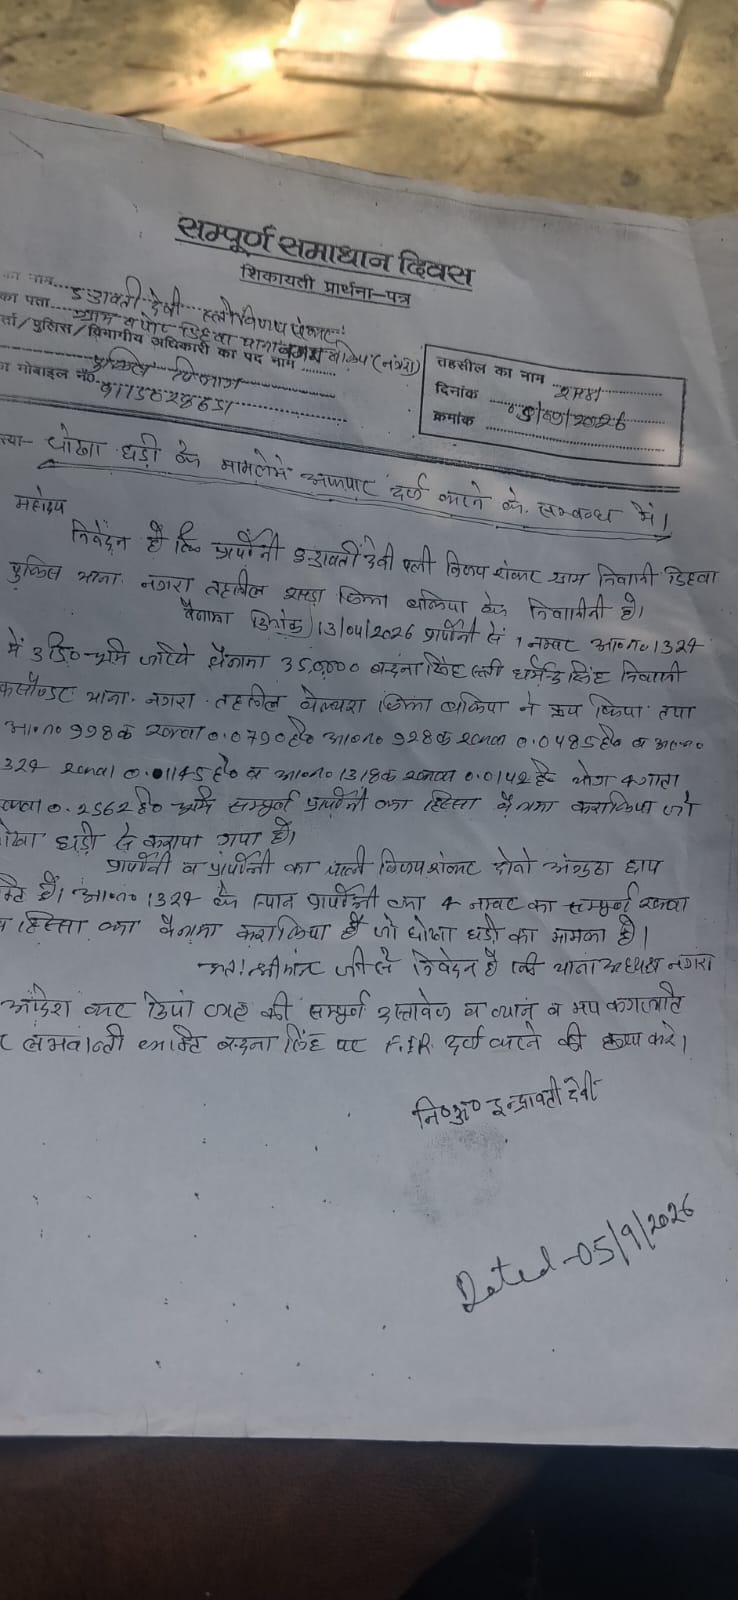 सम्पूर्ण समाधान दिवस
शिकायती प्रार्थना-पत्र
का नाम.... इन्द्रावती देवी स्त्री विजय शंकर
का पता.... ग्राम व पोस्ट डिहवा थाना नगरा बलिया (नगरा)
र्ता/पुलिस/विभागीय अधिकारी का पद नाम
पुलिस विभाग
मोबाइल नं०
तहसील का नाम रसड़ा
दिनांक 05/09/2026
क्रमांक
धोखा धड़ी के मामले में अपराध दर्ज करने के सम्बन्ध में।
महोदय
निवेदन है कि प्रार्थीनी इन्द्रावती देवी पत्नी विजय शंकर ग्राम निवासी डिहवा
पुलिस थाना नगरा तहसील रसड़ा जिला बलिया के निवासीनी है।
बैनामा दिनांक 13/04/2026 प्रार्थीनी से 1 नम्बर आ०न० 1324
में 3 डि० भूमि जरिये बैनामा 350,000 बन्दना सिंह स्त्री धर्मेन्द्र सिंह निवासी
थाना नगरा तहसील बेल्थरा जिला बलिया ने क्रय किया तथा
आ०न० 998क रकबा 0.0790हे० आ०न० 928क रकबा 0.0485हे० व आ०न०
324 रकबा 0.01145हे० व आ०न० 1318क रकबा 0.0142हे० योग 4 गाटा
रकबा 0.2562हे० भूमि सम्पूर्ण प्रार्थीनी का हिस्सा बैनामा करा लिया जो
धोखा धड़ी से कराया गया है।
प्रार्थीनी व प्रार्थीनी का पति विजय शंकर दोनो अंगुठा छाप
है। आ०न० 1324 के स्थान प्रार्थीनी का 4 नम्बर का सम्पूर्ण रकबा
हिस्सा का बैनामा करा लिया है जो धोखा धड़ी का मामला है।
अतः श्रीमान जी से निवेदन है कि थाना अध्यक्ष नगरा
आदेश कर दिया जाए की सम्पूर्ण दस्तावेज व व्यान व मय कागजात
बन्दना सिंह पर F.I.R. दर्ज करने की कृपा करे।
नि०अं० इन्द्रावती देवी
Dated - 05/9/2026